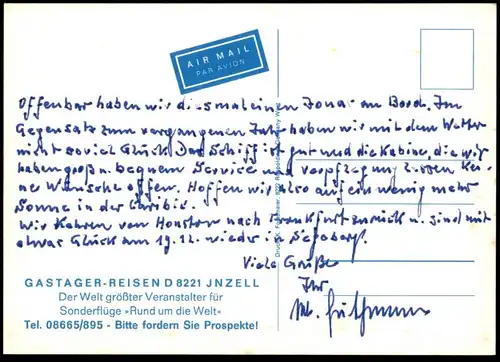 AIR MAIL
PAR AVION
Offenbar haben wir diesmal einen Jonas an Bord. Im
Gegensatz zum vergangenen Jahr haben wir mit dem Wetter
nicht soviel Glück. Das Schiff ist gut und die Kabine, die wir
haben groß u. bequem. Service und Verpflegung lassen kei-
ne Wünsche offen. Hoffen wir also auf ein wenig mehr
Sonne in der Caribic.
Wir kehren von Houston nach Frankfurt zurück u. sind mit
etwas Glück am 19.12. wieder in Segeberg.
Viele Grüße
Ihr
GASTAGER-REISEN D 8221 JNZELL
Der Welt größter Veranstalter für
Sonderflüge »Rund um die Welt«
Tel. 08665/895 - Bitte fordern Sie Prospekte!